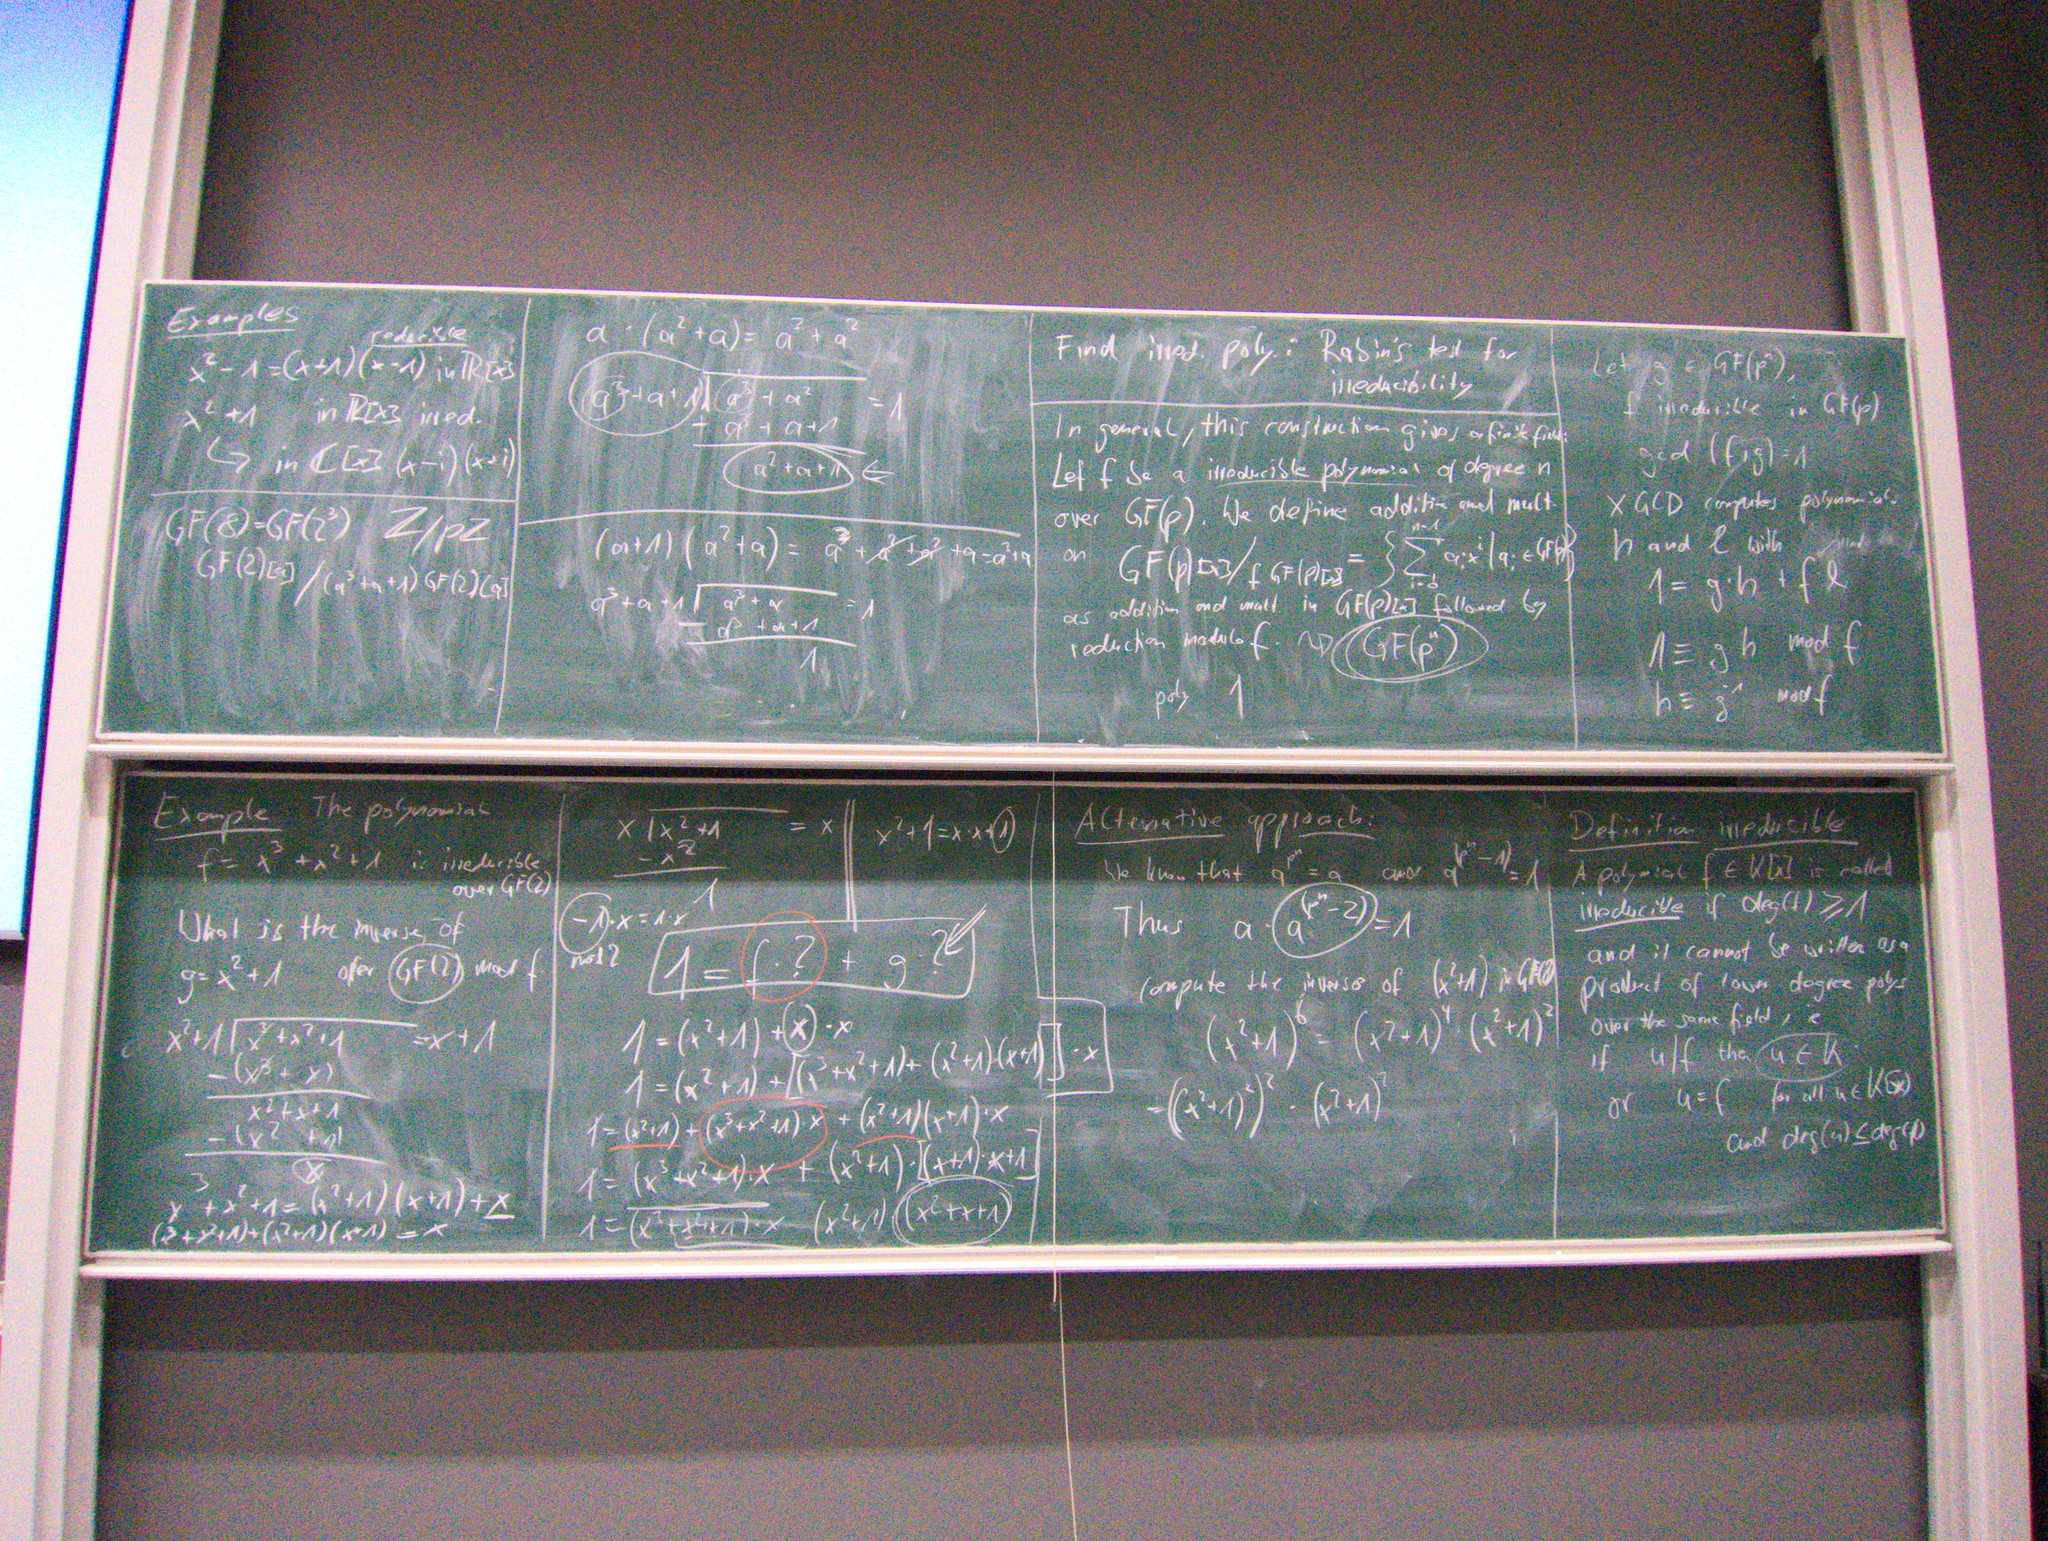 Examples
reducible
x² - 1 = (x+1)(x-1) in ℝ[x]
x² + 1 in ℝ[x] irred.
↪ in ℂ[x] (x-i)(x+i)
GF(8) = GF(2³) Z/pZ
GF(2)[a]/(a³+a+1) GF(2)[a]
a · (a² + a) = a³ + a²
a³+a+1 | a³ + a² = 1
- a³ + a + 1
a² + a + 1 ←
(a+1)(a²+a) = a³ + a² + a² + a = a³+a
a³+a+1 | a³ + a = 1
- a³ + a + 1
1
Find irred. poly.: Rabin's test for
irreducibility
In general, this construction gives a finite field:
Let f be a irreducible polynomial of degree n
over GF(p). We define addition and mult.
on GF(p)[x]/f GF(p)[x] = {∑ⁿ⁻¹ᵢ₌₀ aᵢxⁱ | aᵢ ∈ GF(p)}
as addition and mult in GF(p)[x] followed by
reduction modulo f. ⇝ GF(pⁿ)
poly 1
Let g ∈ GF(pⁿ),
f irreducible in GF(p)
gcd (f,g) = 1
XGCD computes polynomials
h and l with
1 = g·h + f·l
1 ≡ g h mod f
h ≡ g⁻¹ mod f
Example The polynomial
f = x³ + x² + 1 is irreducible
over GF(2)
What is the inverse of
g = x² + 1 over GF(2) mod f.
x²+1 | x³ + x² + 1 = x + 1
-(x³ + x)
x² + x + 1
-(x² + 1)
x
x³ + x² + 1 = (x²+1)(x+1) + x
(x³+x²+1)+(x²+1)(x+1) = x
x | x² + 1 = x
- x²
1
x² + 1 = x·x + 1
-1·x = 1·x
mod 2
1 = f·? + g·?
1 = (x²+1) + x · x
1 = (x²+1) + [(x³+x²+1) + (x²+1)(x+1)] · x
1 = (x²+1) + (x³+x²+1)·x + (x²+1)(x+1)·x
1 = (x³+x²+1)·x + (x²+1)·[(x+1)·x+1]
1 = (x³+x²+1)·x (x²+1) (x²+x+1)
Alternative approach:
We know that a^(pⁿ) = a and a^(pⁿ-1) = 1
Thus a · a^(pⁿ-2) = 1
compute the inverse of (x²+1) in GF(8)
(x²+1)⁶ = (x²+1)⁴ · (x²+1)²
= ((x²+1)²)² · (x²+1)²
Definition irreducible
A polynomial f ∈ K[x] is called
irreducible if deg(f) ≥ 1
and it cannot be written as a
product of lower degree polys
over the same field, i.e.
if u|f then u ∈ K
or u = f for all u ∈ K[x]
and deg(u) ≤ deg(f)